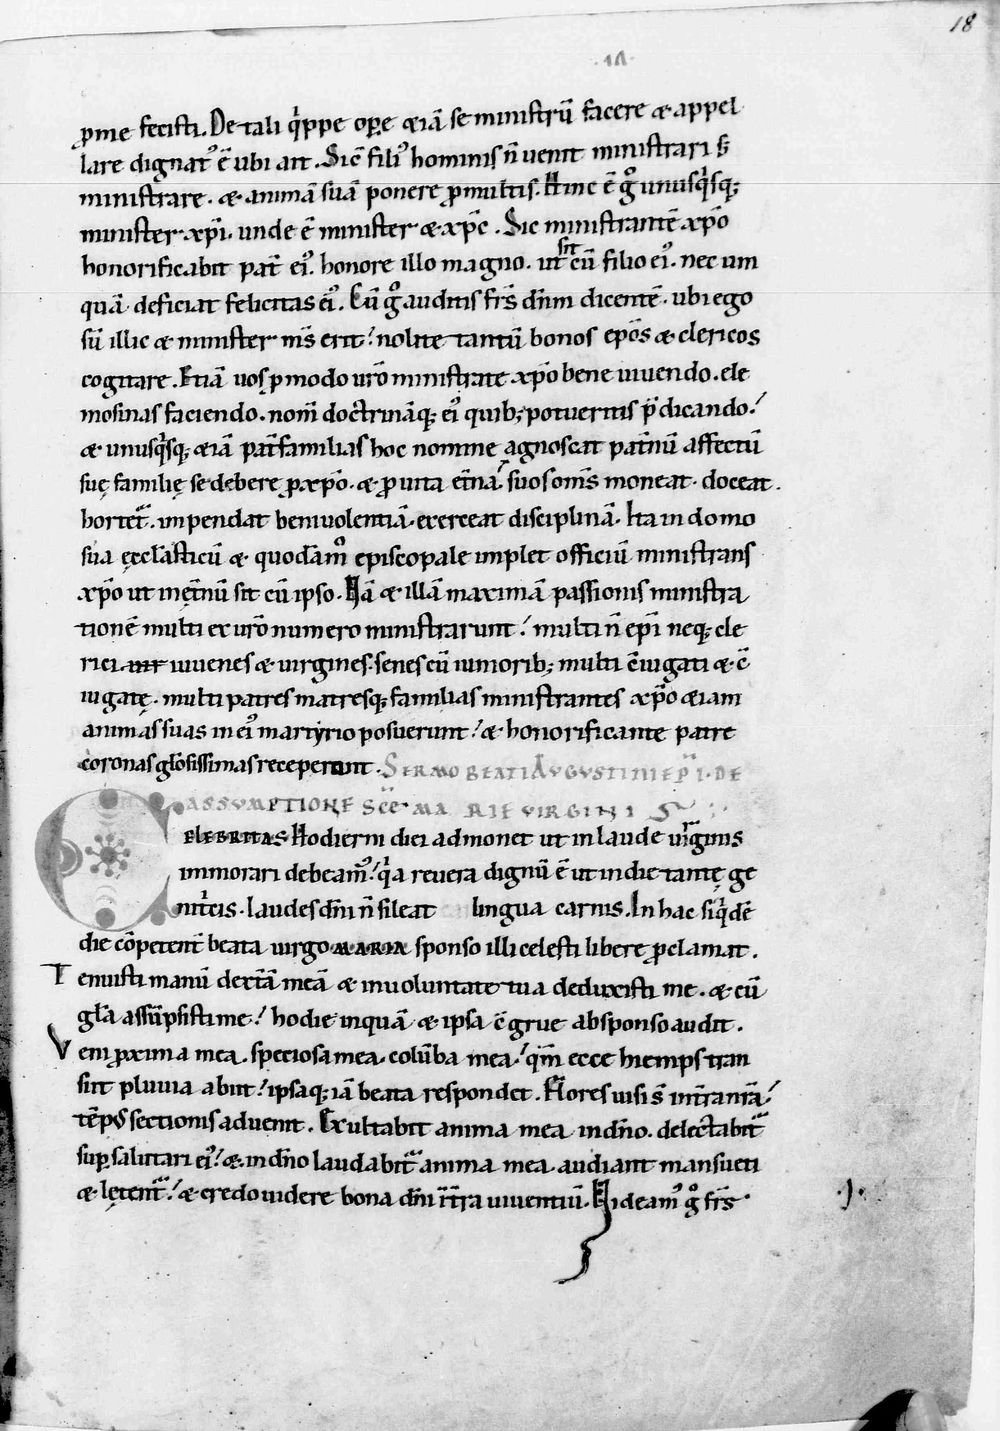 18
·VI·
ꝓme fecisti. De tali q̇ppe oꝑe &iā se ministrū facere & appel
lare dignatꝰ ē ubi ait. Sic̄ filiꝰ hominis n̄ uenit ministrari s;
ministrare. & animā suā ponere ꝓmultis. Hinc ē gͦ unusq̇sq;
minister xp̄i. unde ē minister & xp̄c. Sic ministrantē xp̄o
honorificabit pat̄ eiꝰ. honore illo magno. ut sit cū filio eiꝰ. nec um
quā deficiat felicitas eiꝰ. Cū gͦ auditis fr̄s dn̄m dicentē. ubi ego
sū illic & minister ms̄ erit! nolite tantū bonos ep̄os & clericos
cogitare. Etiā uos ꝑ modo ur̄o ministrate xp̄o bene uiuendo. ele
mosinas faciendo. nom̄ doctrināq; eiꝰ quib; potueritis p̄dicando!
& unusq̇sq; &iā pat̄familias hoc nomine agnoscat pat̄nū affectū
suę familię se debere ꝓ xp̄o. & ꝓ uita et̄nā suos om̄s moneat. doceat.
hortet̄. impendat beniuolentiā. exerceat disciplinā. Ita in domo
sua ęccl̄asticū & quodāmͦ episcopale implet officiū ministrans
xp̄o ut in et̄nū sit cū ipso. Nā & illā maximā passionis ministra
tionē multi ex ur̄o numero ministrarunt! multi n̄ ep̄i neq; cle
rici iuuenes & uirgines. senes cū iuniorib; multi c̄iugati & c̄
iugatę. multi patres matresq; familias ministrantes xp̄o &iam
animas suas in eiꝰ martyrio posuerunt! & honorificante patre
coronas gl̄osissimas receperunt. SERMO BEATI AVGVSTINI EP̄I. DE
ASSVMPTIONE SCĒ MARIE VIRGINIS
CELEBRITAS Hodierni diei admonet ut in laude uirginis
immorari debeamꝰ! q̇a reuera dignū ē ut in die tantę ge
niṫcis. laudes dn̄i n̄ sileat lingua carnis. In hac siq̇dē
die cōpetent̄ beata uirgo MARIA sponso illi celesti libere ꝓclamat.
Tenuisti manū dext̄ā meā & in uoluntate tua deduxisti me. & cū
gl̄a assūpsisti me! hodie inquā & ipsa c̄grue ab sponso audit.
Veni ꝓxima mea. speciosa mea. colūba mea! qm̄ ecce hiemps tran
siit pluuia abiit! ipsaq; iā beata respondet. Flores uisi s̄ in t̄ra nr̄a!
tēpꝰ sectionis aduenit. Exultabit anima mea in dn̄o. delectabit̄
suꝑ salutari eiꝰ! & in dn̄o laudabit̄ anima mea. audiant mansueti
& lętent̄! & credo uidere bona dn̄i i t̄ra uiuentiū. Videamꝰ gͦ fr̄s